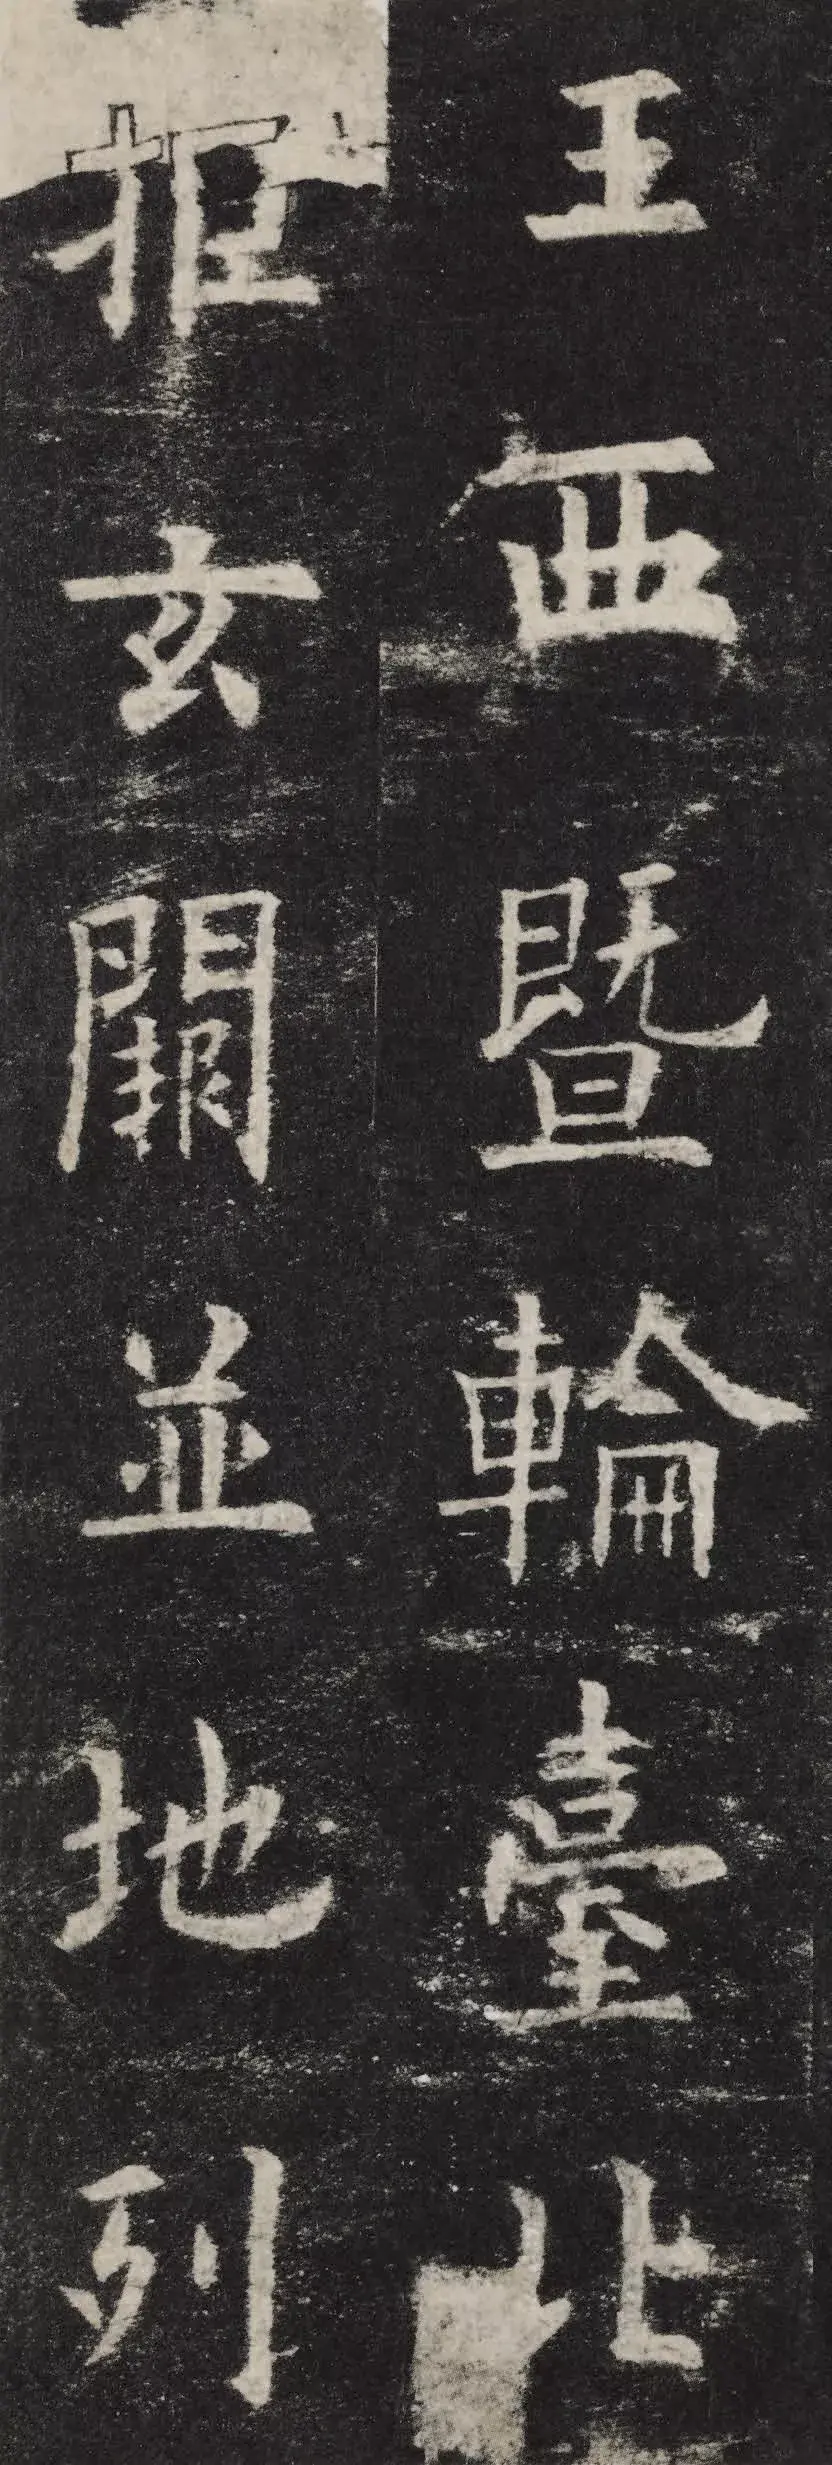 王西暨輪臺北
拒玄闕並地列